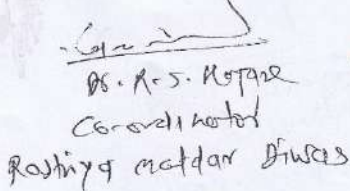 Dr. R. S. Mopare
Co-ordinator
Rashtriya matdar Diwas